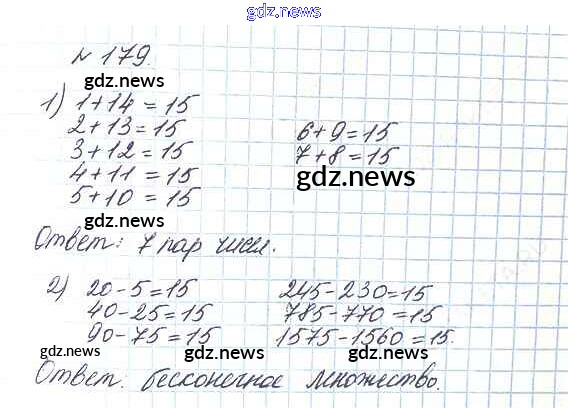 gdz.news
№ 179.
gdz.news
1) 1+14 = 15
2+13 = 15
6+9=15
3+12 = 15
7+8=15
4+11 = 15
gdz.news
5+10 = 15
gdz.news
Ответ: 7 пар чисел.
2) 20-5=15
245-230=15
40-25=15
785-770=15
90-75=15
1575-1560=15.
gdz.news
gdz.news
gdz.news
Ответ. бесконечное множество.